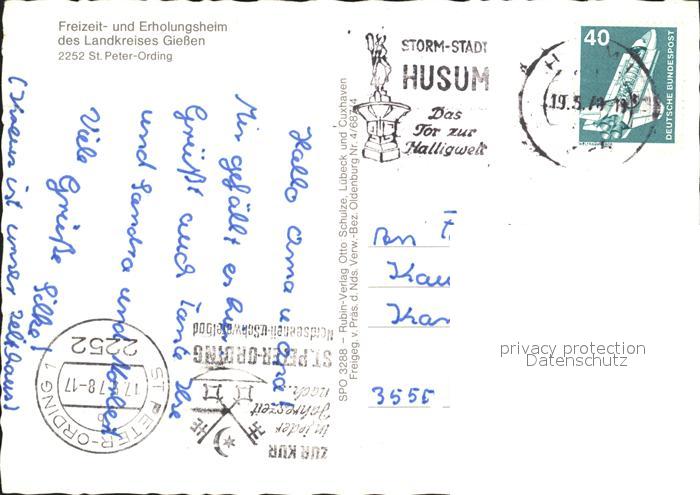 Freizeit- und Erholungsheim
des Landkreises Gießen
2252 St. Peter-Ording
Hallo Oma u. Opa!
Mir gefällt es hier
Grüßt auch Tante Ilse
und Sandra und Norbert
Viele Grüße Silke!
(Ihrem ist unser Zelthaus)
SPO 3288 – Rubin-Verlag Otto Schulze, Lübeck und Cuxhaven
Freigeg. v. Präs. d. Nds. Verw.-Bez. Oldenburg Nr. 4/6874
STORM-STADT
HUSUM
Das
Tor zur
Halligwelt
19.5.78
40
DEUTSCHE BUNDESPOST
An
Kau
Kar
355
privacy protection
Datenschutz
ZUR KUR
in jeder
Jahreszeit
nach...
ST. PETER-ORDING
Nordseeheil- u. Schwefelbad
ST. PETER-ORDING 1
17.5.78-17
2252